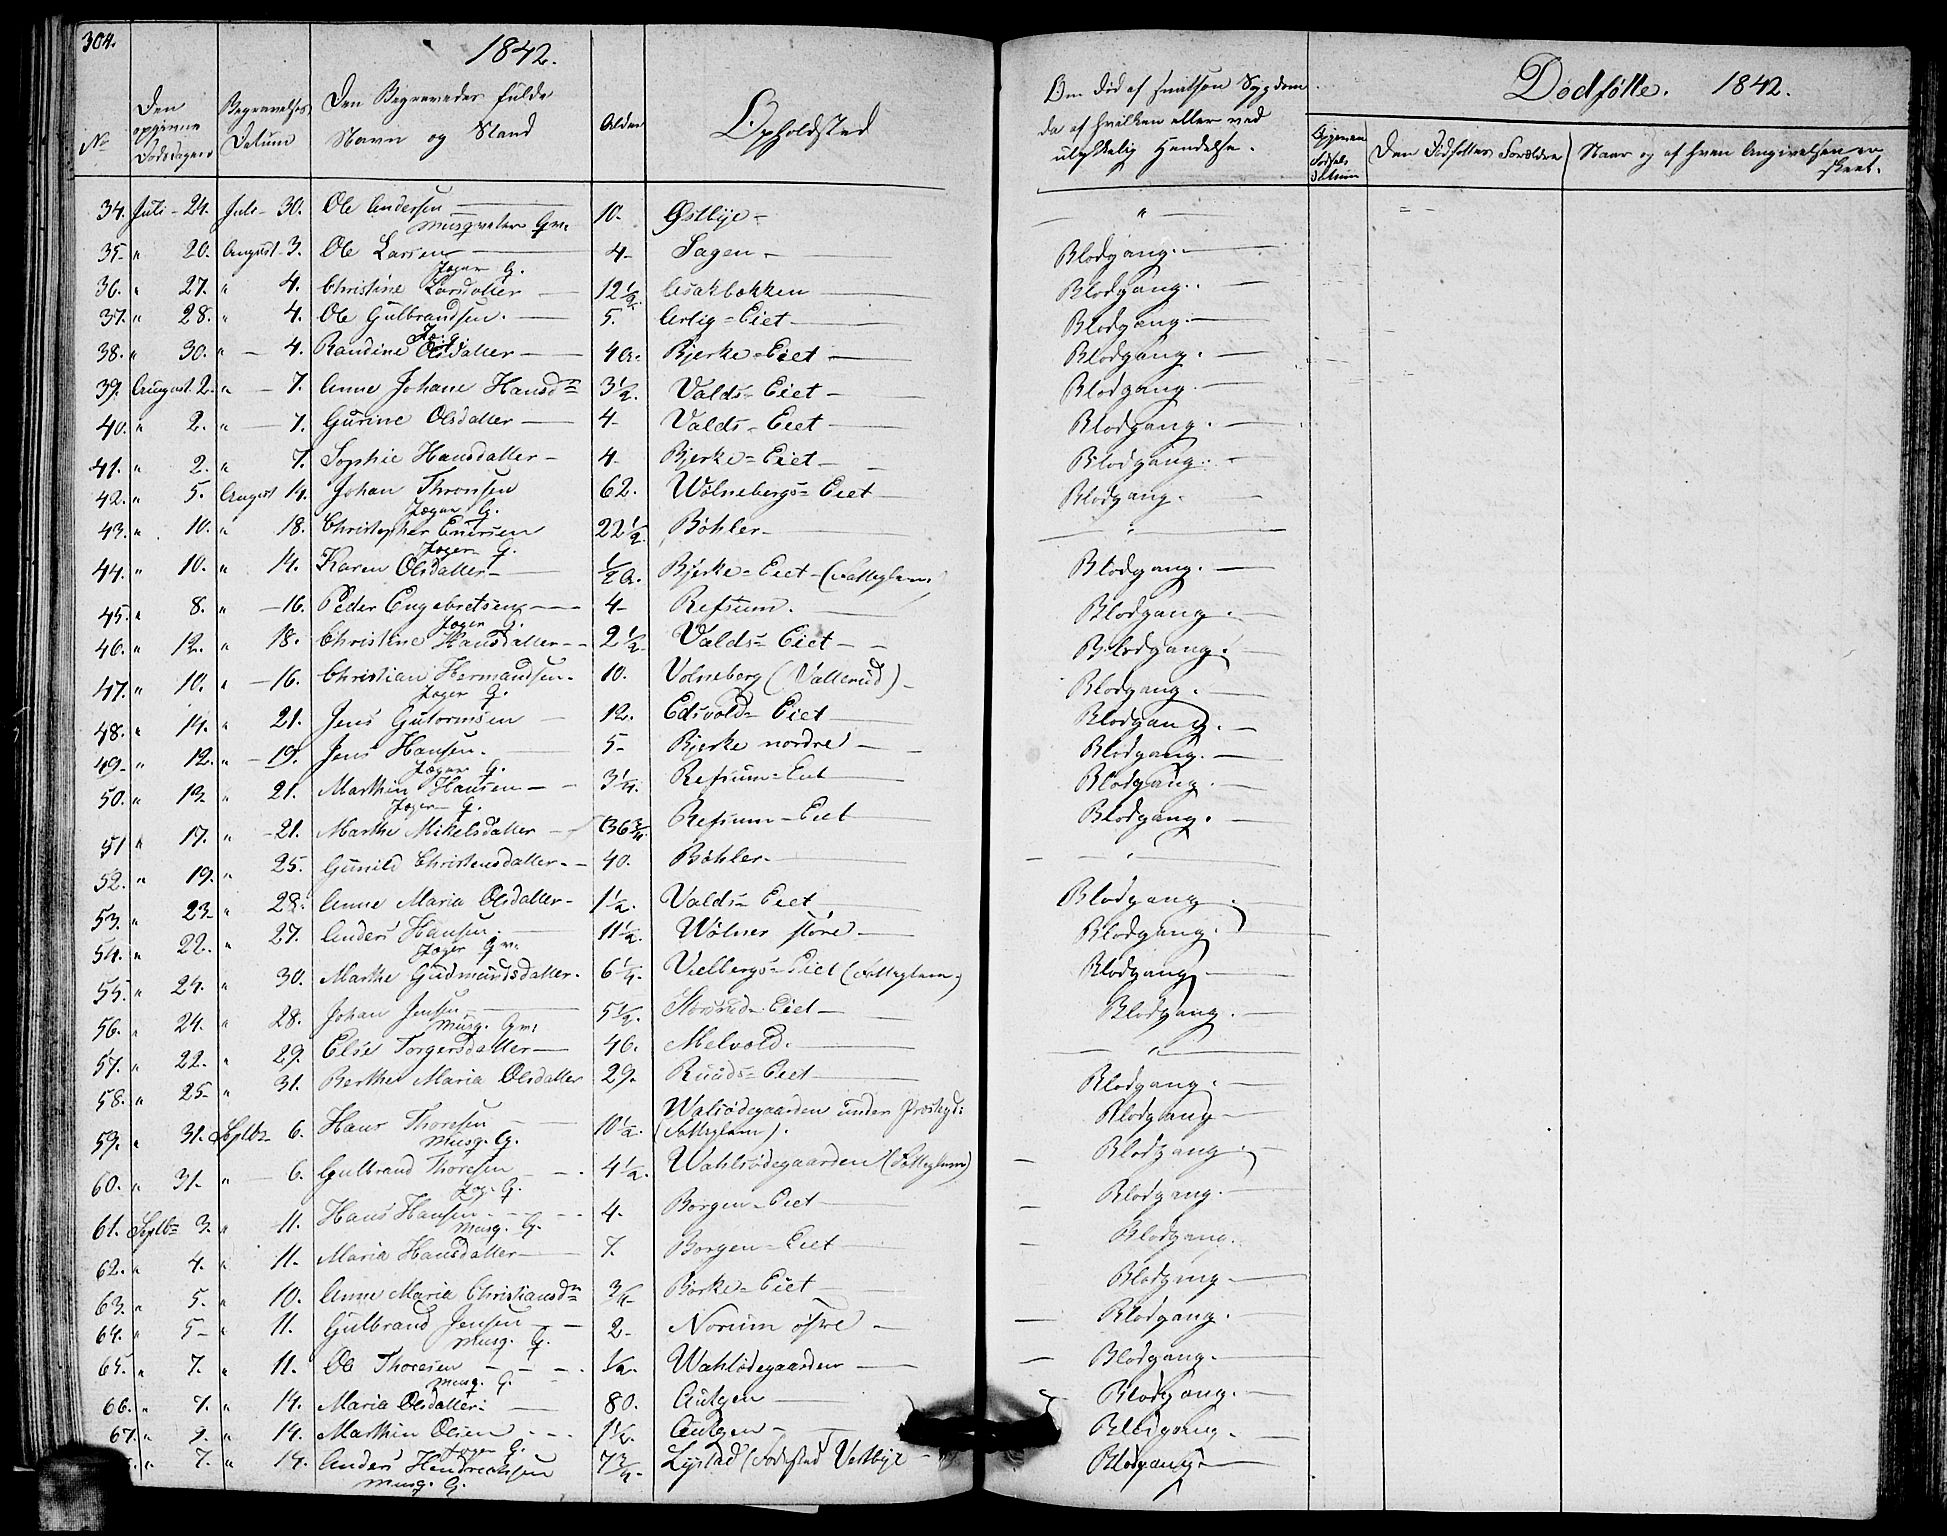 304.
1842.
No
Den opgivne Dødsdagen
Begravelses Datum
Den Begravedes fulde Navn og Stand
Alder
Opholdsted
Om død af smitsom Sygdom
da af hvilken eller ved
ulykkelig Hendelse.
Dødfødte. 1842.
Fødsels Datum
Den Dødfødtes Forældre
Naar og af hvem Angivelsen er skeet.
34. Juli - 24. Juli - 30. Ole Andersen 10. Østbye - "
35 " 20. August 3. Ole Larsen 4 - Hagen - Blodgang.
36. " 27. " 4. Christine Larsdatter 12 1/2. Asakbakken Blodgang.
37. " 28. " 4. Ole Gulbrandsen. 5. Arlig = Eiet Blodgang.
38. " 30. " 4. Randine Olsdatter 4 Bjerke = Eiet Blodgang.
39. August 2. " 7. Anne Johane Hansdr 3 1/2. Valds = Eiet Blodgang.
40. " 2. " 7. Gurine Olsdatter 4 - Valds = Eiet Blodgang.
41. " 2. " 7. Sophie Hansdatter - 4 - Bjerke = Eiet Blodgang.
42. " 5. August 14. Johan Thronsen 62. Wølnebergs = Eiet Blodgang.
Jæger G.
43. " 10. " 18. Christopher Enersen 22 1/2. Bøhler "
Jæger G.
44. " 10. " 14. Karen Olsdatter 1/2 Bjerke = Eiet Blodgang.
45. " 8. " 16. Peder Engebretsen 4 - Refsum. Blodgang.
Jæger G.
46. " 12. " 18. Christine Hansdatter 2 1/2 Valds = Eiet Blodgang.
47. " 10. " 16. Christian Hermandsen. 10. Volneberg (Vallerud) Blodgang.
Jæger G.
48. " 14. " 21. Jens Gutormsen 12. Edsvold = Eiet Blodgang.
49 " 12. " 19. Jens Hansen. 5 - Bjerke nordre Blodgang.
Jæger G.
50. " 13 " 21. Marthin Hansen 3 1/4. Refsum = Eiet Blodgang.
Jæger G.
51 " 17. " 21. Marthe Mikelsdatter 36 3/4. Refsum = Eiet Blodgang.
52. " 19. " 25. Gunild Christensdatter 40. Bøhler - "
53. " 23 " 28. Anne Maria Olsdatter 1 1/2. Valds = Eiet Blodgang.
54. " 22. " 27. Anders Hansen. 11 1/2. Wølner Blodgang.
Jæger Gv.
55. " 24. " 30. Marthe Gudmundsdatter. 6 1/4. Vielbergs = Eiet Blodgang
56. " 24. " 28. Johan Jensen 5 1/2. Eiet Blodgang.
Musq. Gv.
57. " 22. " 29. Else Torgersdatter 46. Melvold. "
58. " 25 " 31. Berthe Maria Olsdatter 29. Ruuds = Eiet Blodgang.
59. " 31. Septbr 6. Hans Thoresen 10 1/2. Walsødegaarden under Blodgang
Musq. G.
60. " 31. " 6. Gulbrand Thoresen 4 1/2. Wahlsødegaarden Blodgang.
Jæg. G.
61. Septbr 3. " 11. Hans Hansen 4. Borgen = Eiet Blodgang.
Musq. G.
62. " 4. " 11. Maria Hansdatter 7. Borgen = Eiet Blodgang.
63. " 5. " 10. Anne Maria Christiansdr 3/4 Børke = Eiet Blodgang
64. " 5 " 11. Gulbrand Jensen 2 - Norum øfre Blodgang.
Musq. G.
65. " 7. " 11. Ole Thoresen 1/2. Wahlsødegaarden Blodgang.
Musq. G.
66. " 7. " 14. Maria Olsdatter 80. Autgen Blodgang.
67. " 9. " 14. Marthin Olsen 1 1/2. Autgen Blodgang.
Jæger G.
" 7. " 14. Anders Hendrecksen 7 3/4. Lystad (Fødested Vestbye Blodgang
Musq. G.